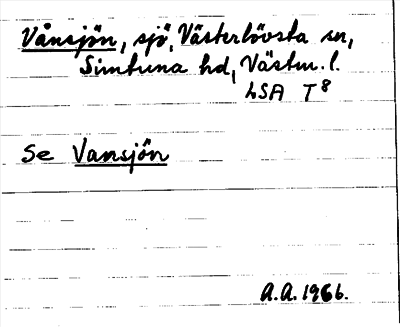 Vånsjön, sjö, Västerlövsta sn,
Simtuna hd, Västm. l.
LSA T8
Se Vansjön
A.A. 1966.